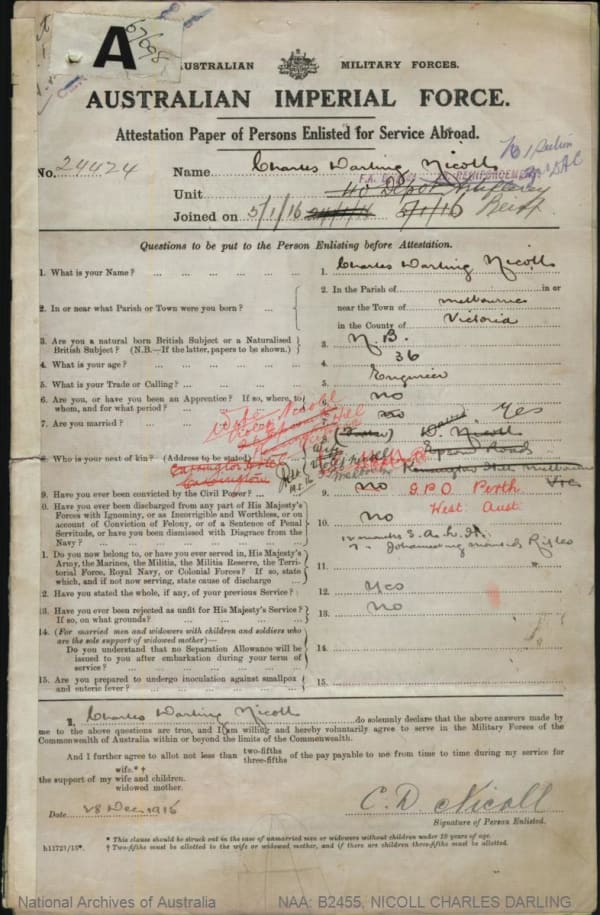 A
67/098
AUSTRALIAN MILITARY FORCES.
AUSTRALIAN IMPERIAL FORCE.
Attestation Paper of Persons Enlisted for Service Abroad.
No. 24424
Name Charles Darling Nicoll
Unit 40 Depot Artillery
Joined on 5/1/16 5/1/16 Reinf
Questions to be put to the Person Enlisting before Attestation.
1. What is your Name? 1. Charles Darling Nicoll
2. In or near what Parish or Town were you born? 2. In the Parish of in or
near the Town of Melbourne
in the County of Victoria
3. Are you a natural born British Subject or a Naturalised
British Subject? (N.B.—If the latter, papers to be shown.) 3. N.B.
4. What is your age? 4. 36
5. What is your Trade or Calling? 5. Engineer
6. Are you, or have you been an Apprentice? If so, where, to
whom, and for what period? 6. no
7. Are you married? 7. no Yes
8. Who is your next of kin? (Address to be stated) 8. D. Nicoll
Epsom Road
Kensington Melbourne
Vic
G.P.O Perth
West. Aust
9. Have you ever been convicted by the Civil Power? 9. no
0. Have you ever been discharged from any part of His Majesty's
Forces with Ignominy, or as Incorrigible and Worthless, or on
account of Conviction of Felony, or of a Sentence of Penal
Servitude, or have you been dismissed with Disgrace from the
Navy? 10. no
1. Do you now belong to, or have you ever served in, His Majesty's
Army, the Marines, the Militia, the Militia Reserve, the Terri-
torial Force, Royal Navy, or Colonial Forces? If so, state
which, and if not now serving, state cause of discharge 11. 12 months S.A.L.H.
7 " Johannesburg mounted Rifles
2. Have you stated the whole, if any, of your previous Service? 12. Yes
13. Have you ever been rejected as unfit for His Majesty's Service?
If so, on what grounds? 13. no
14. (For married men and widowers with children and soldiers who
are the sole support of widowed mother)—
Do you understand that no Separation Allowance will be
issued to you after embarkation during your term of
service? 14.
15. Are you prepared to undergo inoculation against smallpox
and enteric fever? 15.
I, Charles Darling Nicoll do solemnly declare that the above answers made by
me to the above questions are true, and I am willing and hereby voluntarily agree to serve in the Military Forces of the
Commonwealth of Australia within or beyond the limits of the Commonwealth.
And I further agree to allot not less than two-fifths three-fifths of the pay payable to me from time to time during my service for
wife.*†
the support of my wife and children.
widowed mother.
Date 28 Dec 1916
C. D. Nicoll
Signature of Person Enlisted.
* This clause should be struck out in the case of unmarried men or widowers without children under 18 years of age.
h11721/15*. † Two-fifths must be allotted to the wife or widowed mother, and if there are children three-fifths must be allotted.
National Archives of Australia NAA: B2455, NICOLL CHARLES DARLING